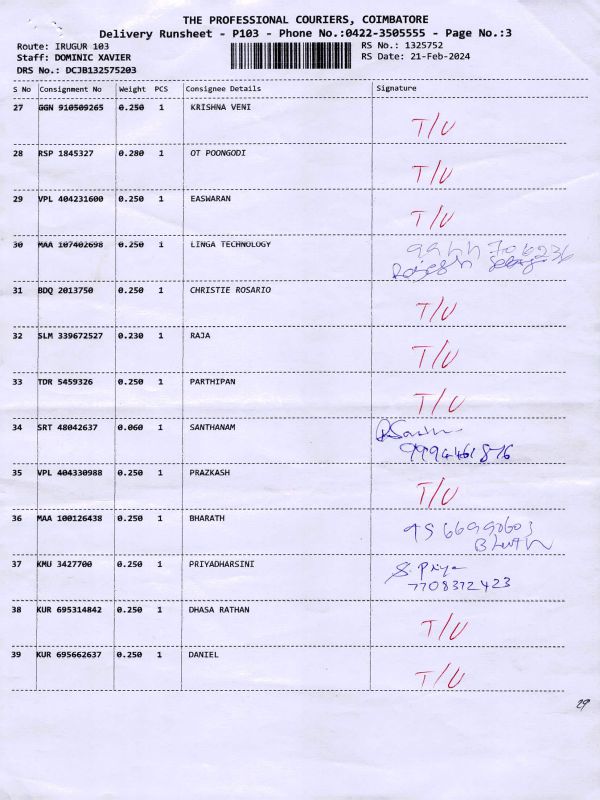 THE PROFESSIONAL COURIERS, COIMBATORE
Delivery Runsheet - P103 - Phone No.:0422-3505555 - Page No.:3
Route: IRUGUR 103 RS No.: 1325752
Staff: DOMINIC XAVIER RS Date: 21-Feb-2024
DRS No.: DCJB132575203
S No Consignment No Weight PCS Consignee Details Signature
27 GGN 910509265 0.250 1 KRISHNA VENI T/U
28 RSP 1845327 0.280 1 OT POONGODI T/U
29 VPL 404231600 0.250 1 EASWARAN T/U
30 MAA 107402698 0.250 1 LINGA TECHNOLOGY
31 BDQ 2013750 0.250 1 CHRISTIE ROSARIO T/U
32 SLM 339672527 0.230 1 RAJA T/U
33 TDR 5459326 0.250 1 PARTHIPAN T/U
34 SRT 48042637 0.060 1 SANTHANAM
35 VPL 404330988 0.250 1 PRAZKASH T/U
36 MAA 100126438 0.250 1 BHARATH
37 KMU 3427700 0.250 1 PRIYADHARSINI S. Priya
7708372423
38 KUR 695314842 0.250 1 DHASA RATHAN T/U
39 KUR 695662637 0.250 1 DANIEL T/U
29